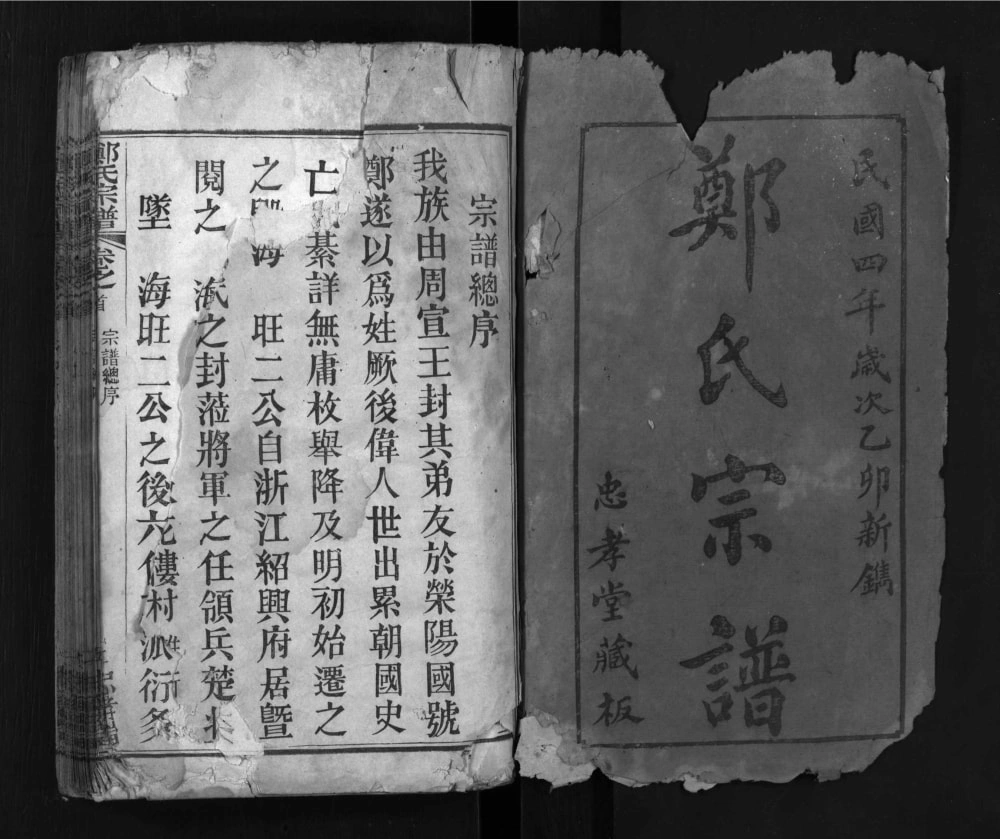 民國四年歲次乙卯新鐫
鄭氏宗譜
忠孝堂藏板
宗譜總序
我族由周宣王封其弟友於榮陽國號
鄭遂以爲姓厥後偉人世出累朝國史
亡綦詳無庸枚舉降及明初始遷之
之海旺二公自浙江紹興府居曁
閱之之封蒞將軍之任領兵楚
墜海旺二公之後六僂村派衍
鄭氏宗譜
卷之首
宗譜總序